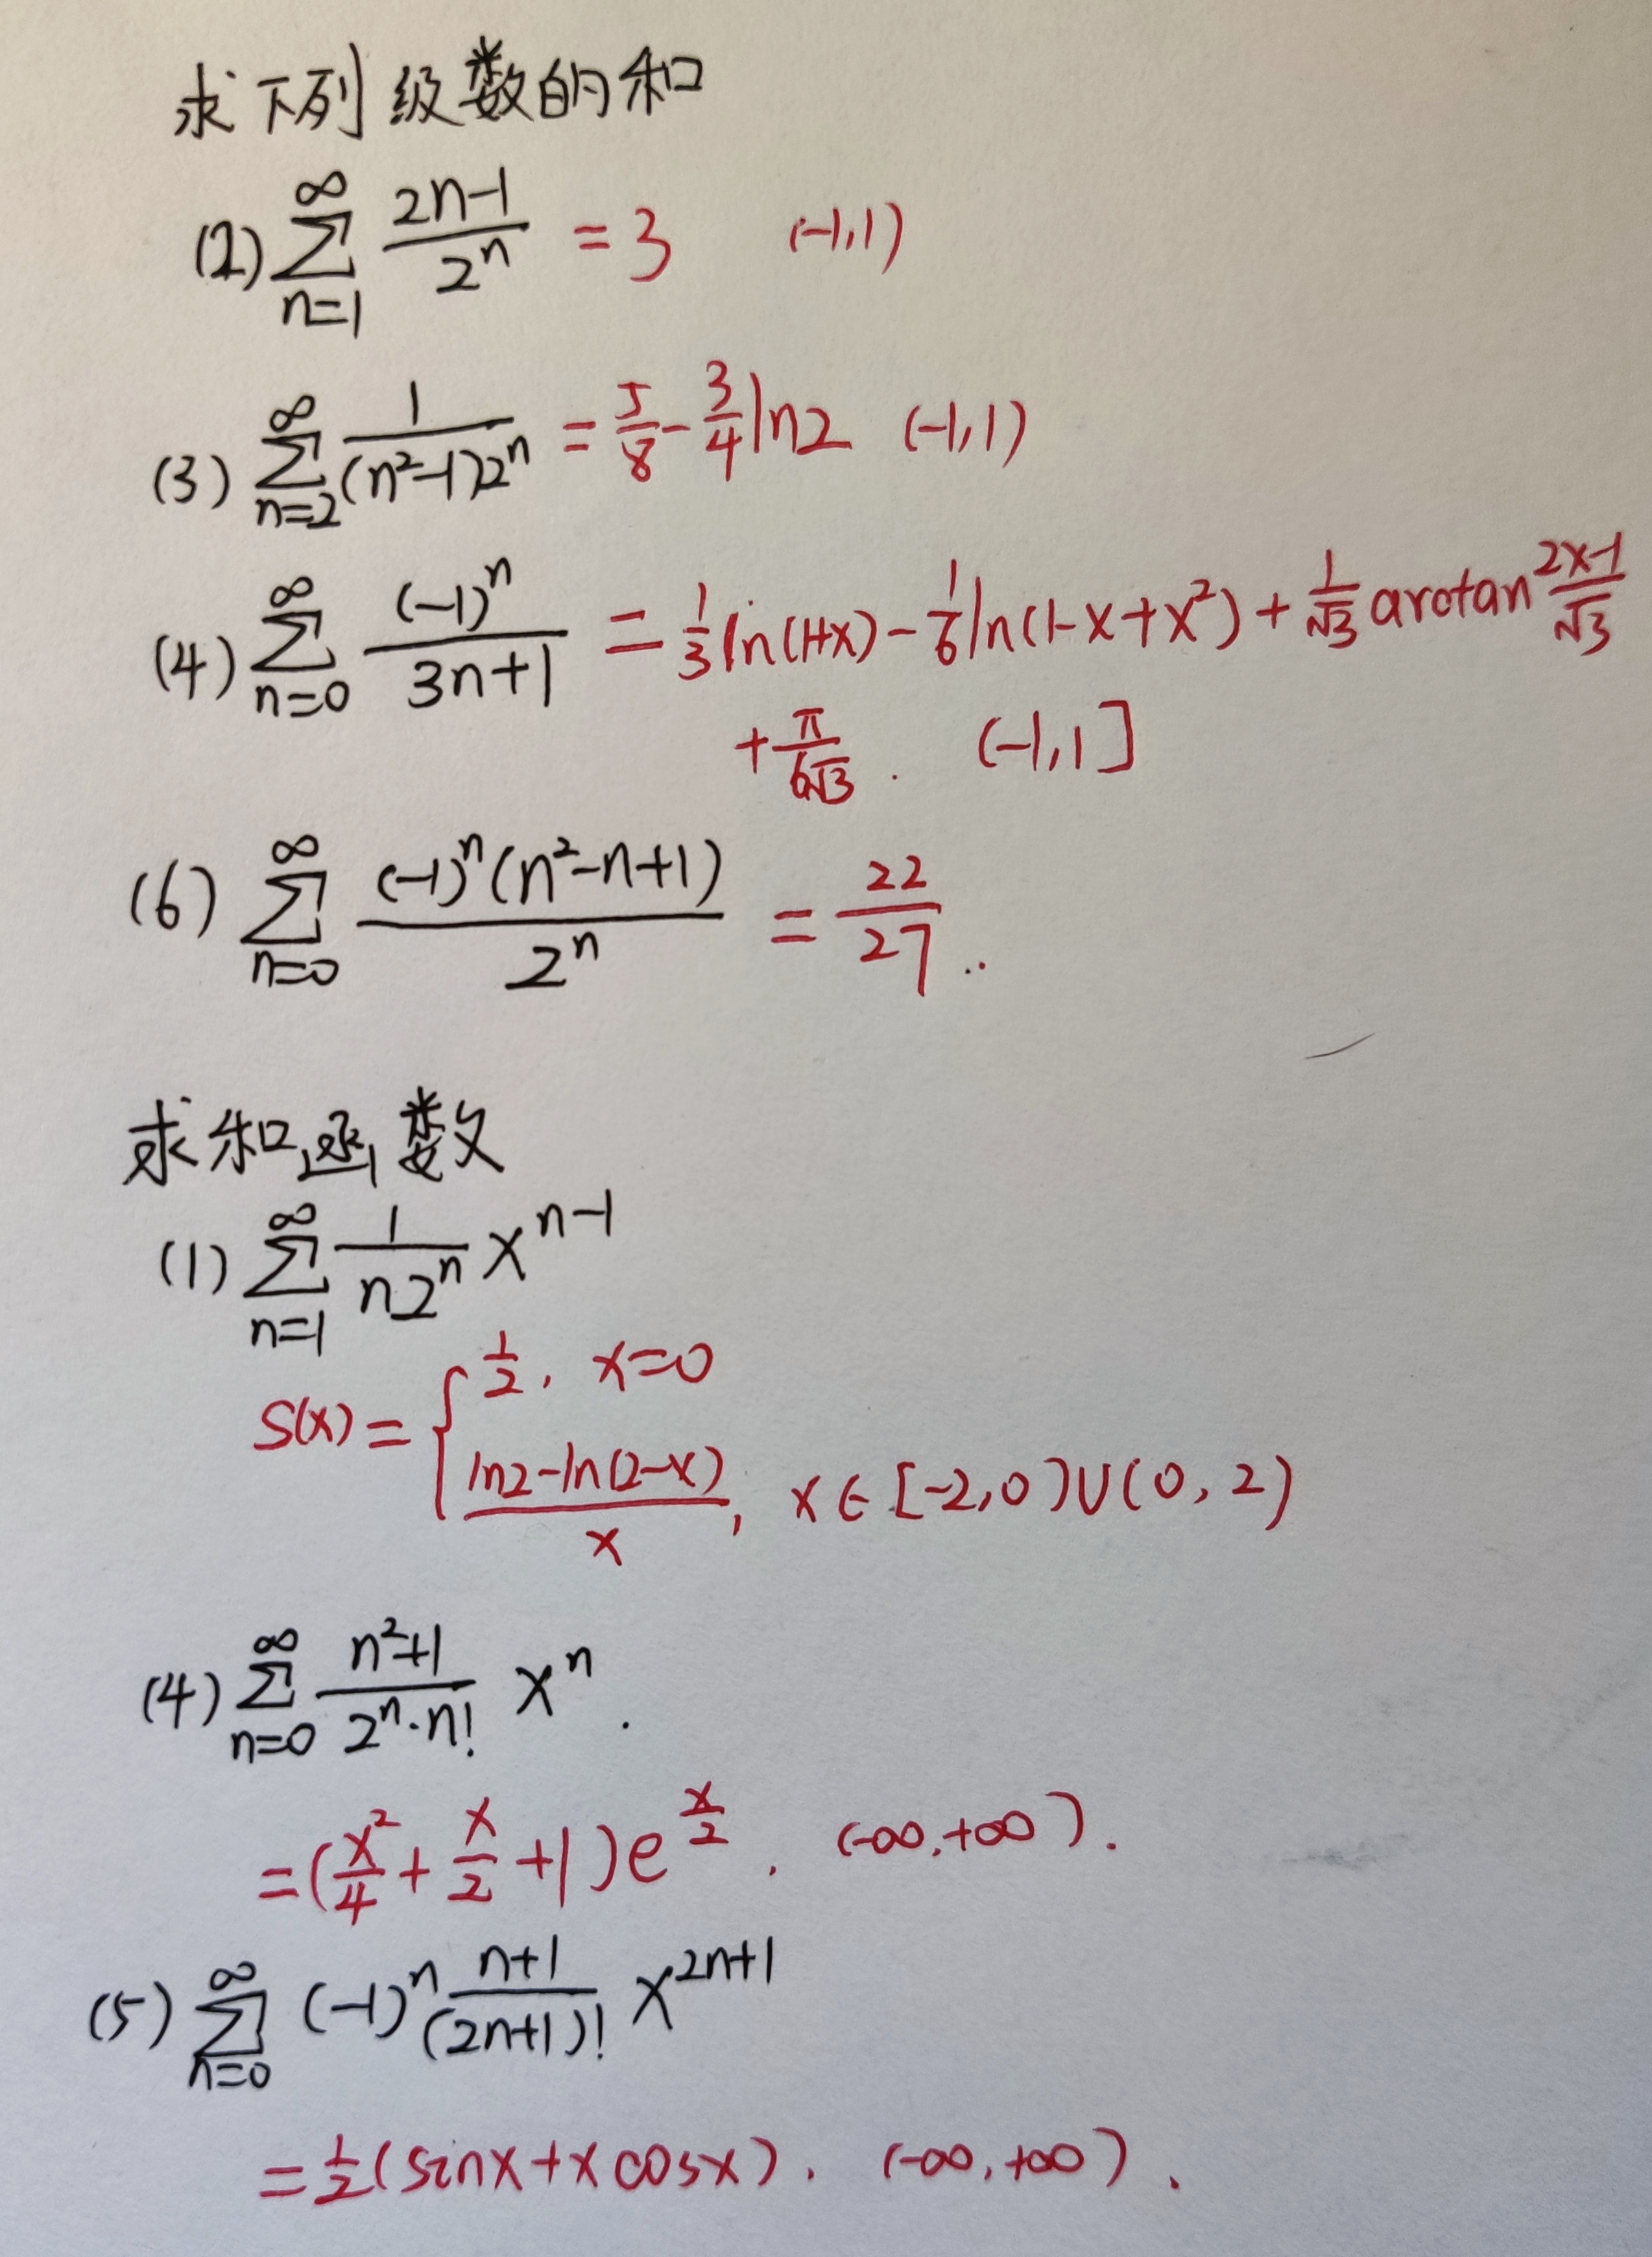 求下列级数的和
(2) $\sum_{n=1}^{\infty} \frac{2n-1}{2^n} = 3$ (-1,1)
(3) $\sum_{n=2}^{\infty} \frac{1}{(n^2-1)2^n} = \frac{5}{8} - \frac{3}{4}\ln 2$ (-1,1)
(4) $\sum_{n=0}^{\infty} \frac{(-1)^n}{3n+1} = \frac{1}{3}\ln(1+x) - \frac{1}{6}\ln(1-x+x^2) + \frac{1}{\sqrt{3}}\arctan\frac{2x-1}{\sqrt{3}}$
$+ \frac{\pi}{6\sqrt{3}}$. (-1,1]
(6) $\sum_{n=0}^{\infty} \frac{(-1)^n(n^2-n+1)}{2^n} = \frac{22}{27}$..
求和函数
(1) $\sum_{n=1}^{\infty} \frac{1}{n2^n} x^{n-1}$
$S(x) = \begin{cases} \frac{1}{2}, & x=0 \\ \frac{\ln 2 - \ln(2-x)}{x}, & x \in [-2,0) \cup (0,2) \end{cases}$
(4) $\sum_{n=0}^{\infty} \frac{n^2+1}{2^n \cdot n!} x^n$.
$= (\frac{x^2}{4} + \frac{x}{2} + 1)e^{\frac{x}{2}}$. $(-\infty, +\infty)$.
(5) $\sum_{n=0}^{\infty} (-1)^n \frac{n+1}{(2n+1)!} x^{2n+1}$
$= \frac{1}{2}(\sin x + x\cos x)$. $(-\infty, +\infty)$.